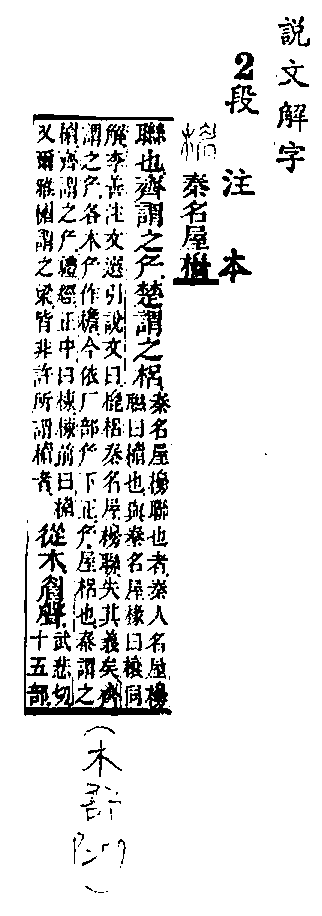 說文解字
2段注本
楣 秦名屋櫋
聯也齊謂之厃楚謂之梠
秦名屋櫋聯也者秦人名屋櫋
聯曰楣也與秦名屋椽曰榱同
解李善注文選引說文曰梠秦名屋櫋聯失其義矣齊
謂之厃各本厃作檐今依厂部厃下正厃屋梠也秦謂之
楣齊謂之厃禮經正中曰棟棟前曰楣
又爾雅楣謂之梁皆非許所謂楣者
從木眉聲
武悲切
十五部
（木